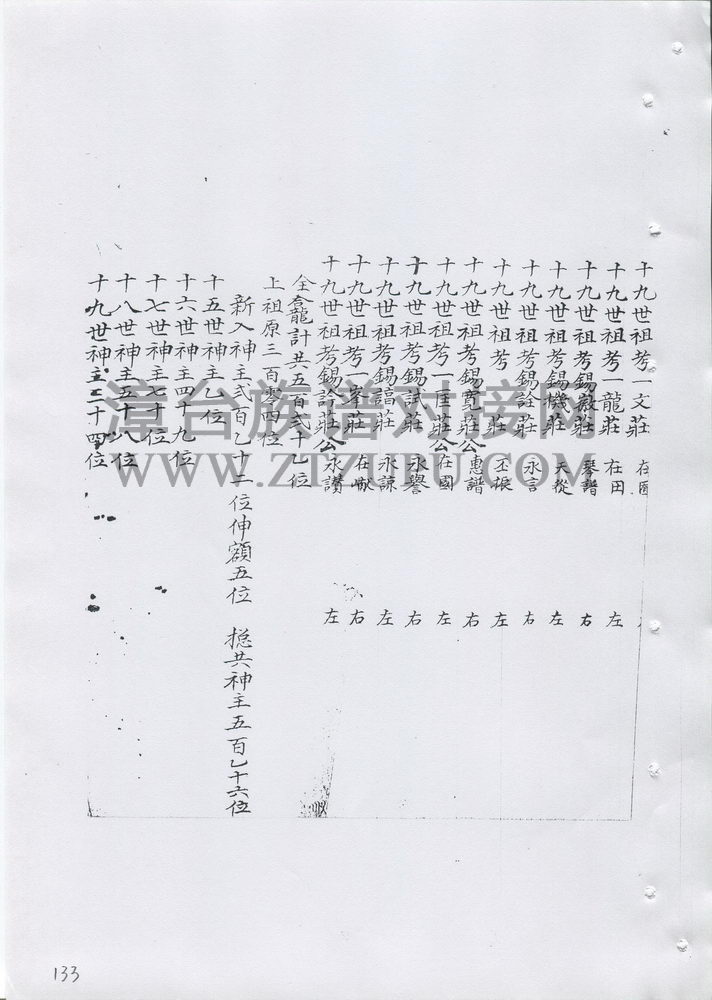 十九世祖考一文莊 在
十九世祖考一龍莊 在田 左
十九世祖考錫嶽莊 琴譜 右
十九世祖考錫機莊 天從 左
十九世祖考錫詮莊 永言 右
十九世祖考 莊 丕振 左
十九世祖考錫寬莊公 惠譜 右
十九世祖考一匡莊公 在國 左
十九世祖考錫試莊 永譽 右
十九世祖考錫諨莊 永諒 左
十九世祖考一峯莊 在 右
十九世祖考錫診莊公 永讚 左
全龕計共五百弍十乙位
上祖原三百零四位
新入神主弍百乙十二位伸額五位 摠共神主五百乙十六位
十五世神主乙位
十六世神主四十九位
十七世神主七十位
十八世神主五十八位
十九世神主三十四位
漳台族谱对接网
WWW.ZTZUPU.COM
133